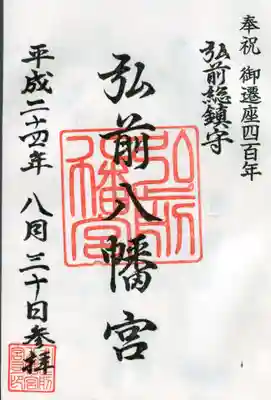 奉祝 御遷座四百年
弘前総鎮守
弘前八幡宮
平成二十四年 八月 三十日参拝
弘前八幡宮